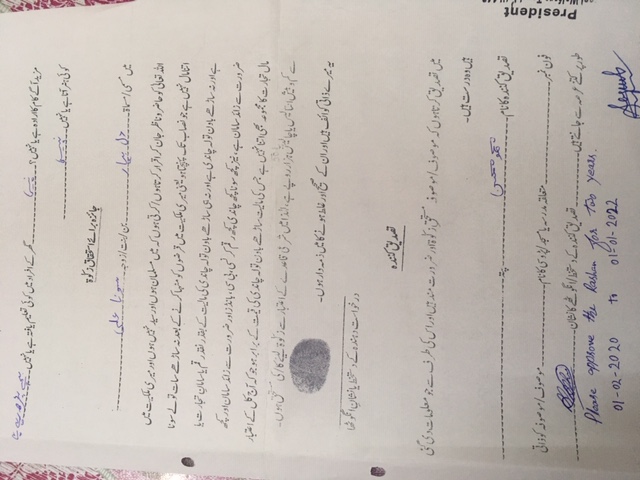 مزید آگے کام کا ارادہ ہے یا نہیں؟ نہیں گھر کے افراد میں کوئی تعلیم یافتہ ہے یا نہیں
کوئی ہنر آتا ہے یا نہیں نہیں
جائزہ برائے استحقاق زکوٰة
میں مسمی/مسماة دل بہار بن/بنت/زوجہ سونا علی
اللہ تعالیٰ کو حاضر و ناظر جان کر اقرار کرتا ہوں/کرتی ہوں کہ میں مسلمان ہوں اور سید نہیں ہوں اور میری ملکیت میں
اتنا مال نہیں ہے جو نصاب تک پہنچتا ہو یعنی میری ملکیت میں قرضوں کو منہا کرنے کے بعد نہ ساڑھے سات تولے سونا
ہے اور نہ ساڑھے باون تولہ چاندی ہے اور نہ ہی ساڑھے باون تولہ چاندی کی مالیت کے بقدر نقد رقم یا سامان تجارت یا
ضرورت سے زائد سامان ہے، نیز کچھ سونا کچھ چاندی کچھ رقم کرنسی، بی سی، بانڈز اور ضرورت سے زائد سامان اور کچھ
مال تجارت کا مجموعہ بھی اتنا نہیں ہے جس کی مالیت ساڑھے باون تولہ چاندی کی قیمت کے برابر ہو جو کہ آج کل کے اعتبار
سے کم و بیش انتالیس یا چالیس ہزار روپے ہے، لہٰذا میں شرعی قاعدے کے اعتبار سے زکوٰة لینے کا/کی مستحق ہوں۔
یہ میرے ذاتی کوائف ہیں اور ان کے صحیح اور غلط ہونے کا میں ذمہ دار ہوں۔
درخواست دہندہ کے دستخط یا نشان انگوٹھا
تصدیق کنندہ
میں تصدیق کرتا ہوں کہ موصوف/موصوفہ مستحق زکوٰة اور ضرورت مند ہیں اور اس کی طرف سے جو معلومات دی گئی
ہیں وہ درست ہیں۔
تصدیق کنندہ کا نام پتہ
فون نمبر متعلقہ مدرسہ یا مسجد/پڑوسی کا نام موصوف/موصوفہ کو ذاتی
طور پر کتنے عرصہ سے جانتے ہیں تصدیق کنندہ کے دستخط/انگوٹھے کا نشان
Please approve the Rashan for two years.
01-02-2020 to 01-01-2022
President